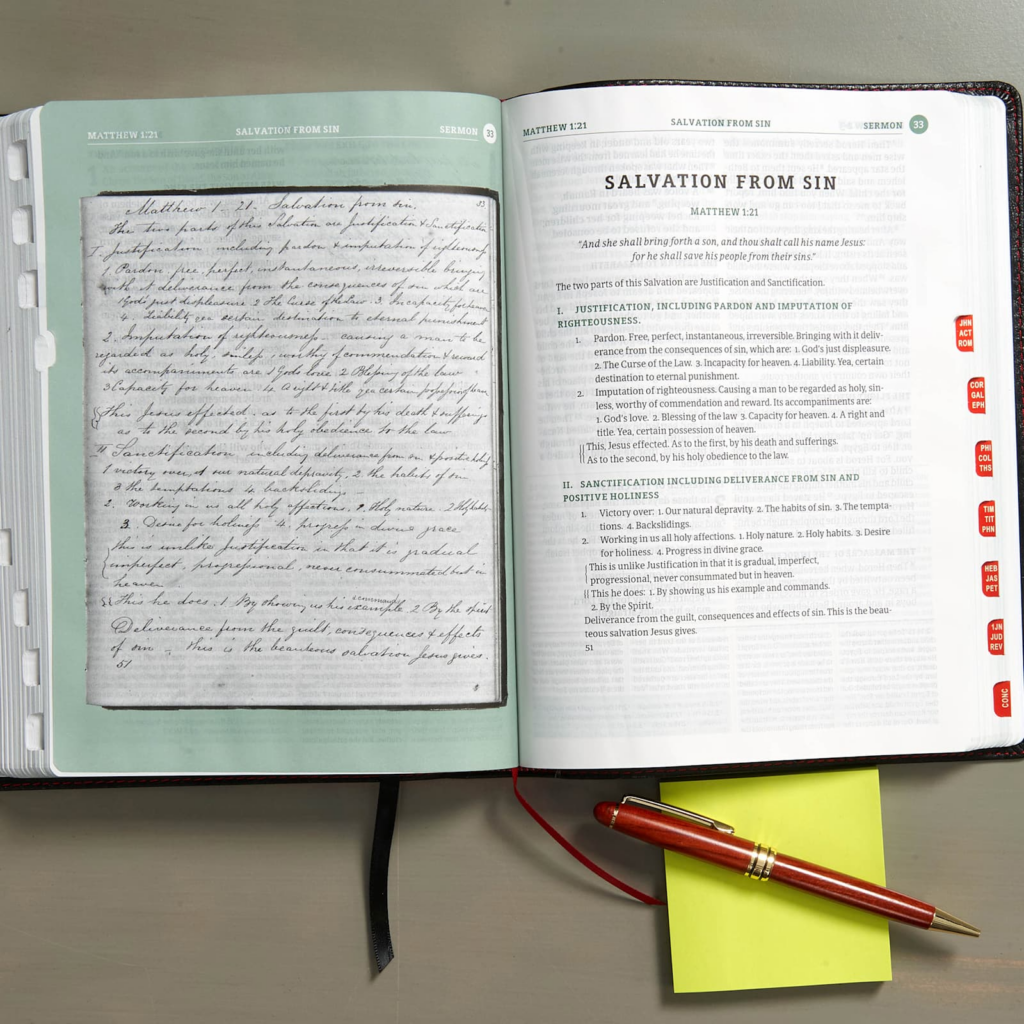 MATTHEW 1:21 SALVATION FROM SIN SERMON 33
Matthew 1 - 21 - Salvation from sin. 33
The two parts of this Salvation are Justification & Sanctification
I - Justification, including pardon & imputation of righteousness
1 Pardon. free, perfect, instantaneous, irreversible bringing
with it deliverance from the consequences of sin which are
1 God's just displeasure 2 The Curse of the Law. 3. Incapacity for heaven
4. Liability yea certain destination to eternal punishment
2. Imputation of righteousness - causing a man to be
regarded as holy, sinless, worthy of commendation & reward
its accompaniments are 1 Gods love. 2 Blessing of the law
3 Capacity for heaven. 4. A right & title yea certain possession of heaven
This Jesus effected, as to the first by his death & sufferings
as to the second by his holy obedience to the law
II Sanctification including deliverance from sin & positive holiness
1 victory over, 1 our natural depravity, 2 the habits of sin
3 the temptations 4. backslidings -
2. Working in us all holy affections, 1. Holy nature. 2 Holy habits.
3. Desire for holiness 4. progress in divine grace
This is unlike Justification in that it is gradual
imperfect, progressive, never consummated but in
heaven
commands
This he does. 1 By showing us his example 2 By the spirit
Deliverance from the guilt, consequences & effects
of sin - This is the beauteous salvation Jesus gives.
51
MATTHEW 1:21 SALVATION FROM SIN SERMON 33
SALVATION FROM SIN
MATTHEW 1:21
"And she shall bring forth a son, and thou shalt call his name Jesus:
for he shall save his people from their sins."
The two parts of this Salvation are Justification and Sanctification.
I. JUSTIFICATION, INCLUDING PARDON AND IMPUTATION OF
RIGHTEOUSNESS.
1. Pardon. Free, perfect, instantaneous, irreversible. Bringing with it deliv-
erance from the consequences of sin, which are: 1. God's just displeasure.
2. The Curse of the Law. 3. Incapacity for heaven. 4. Liability. Yea, certain
destination to eternal punishment.
2. Imputation of righteousness. Causing a man to be regarded as holy, sin-
less, worthy of commendation and reward. Its accompaniments are:
1. God's love. 2. Blessing of the law 3. Capacity for heaven. 4. A right and
title. Yea, certain possession of heaven.
This, Jesus effected. As to the first, by his death and sufferings.
As to the second, by his holy obedience to the law.
II. SANCTIFICATION INCLUDING DELIVERANCE FROM SIN AND
POSITIVE HOLINESS
1. Victory over: 1. Our natural depravity. 2. The habits of sin. 3. The tempta-
tions. 4. Backslidings.
2. Working in us all holy affections. 1. Holy nature. 2. Holy habits. 3. Desire
for holiness. 4. Progress in divine grace.
This is unlike Justification in that it is gradual, imperfect,
progressional, never consummated but in heaven.
This he does: 1. By showing us his example and commands.
2. By the Spirit.
Deliverance from the guilt, consequences and effects of sin. This is the beau-
teous salvation Jesus gives.
51
JHN
ACT
ROM
COR
GAL
EPH
PHI
COL
THS
TIM
TIT
PHN
HEB
JAS
PET
1JN
JUD
REV
CONC